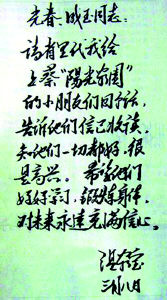 光春、成玉同志：
请有空代我给
上蔡“阳光家园”
的小朋友们回个话，
告诉他们信已收读，
知他们一切都好，很
是高兴。希望他们
好好学习，锻炼身体，
对未来永远充满信心。
温家宝
三月八日